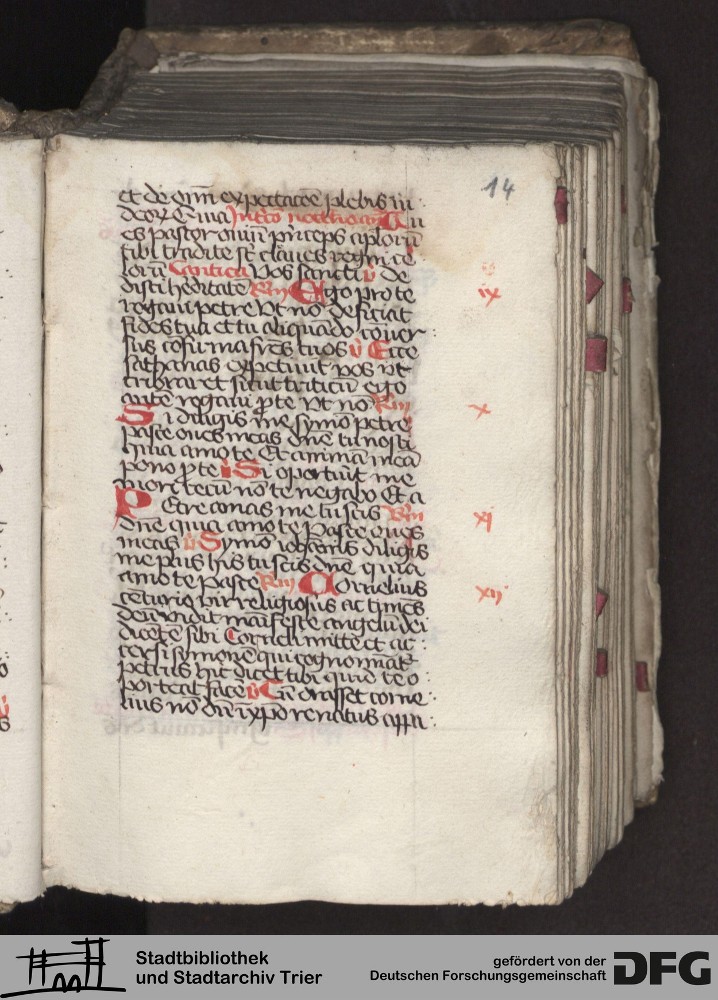 14
et de om̄i expectacōe plebis iu
deoꝝ Eua In tercō nocturno añ Tu
es pastor ouiū p̄nceps aplorū
tibi tradite sūt claues regni ce
lorū Cantica Vos sancti v̄ de
disti heditatē Rm̄ Ego pro te
ix
rogaui petre vt nō deficiat
fides tua et tu aliquādo cōuer
sus cōfirma frēs tuos v̄ Ecce
sathanas expetiuit vos vt
cribraret sicut triticū ego
aūte rogaui p̱ te vt nō Rm̄
x
Si diligis me symō petre
pasce oues meas dn̄e tu nosti
quia amo te Et animā meā
pono p̱ te v̄ Si oportuīt me
mori tecū nō te negabo Et a
Petre amas me tu scis Rm̄
xi
dn̄e quia amo te Pasce oues
meas v̄ Symō iohannis diligis
me plus his tu scis dn̄e quia
amo te Pasce Rm̄ Cornelius
xij
cēturio vir religiosus ac timēs
deū vidit manifeste angelū dei
dicētē sibi Corneli mitte et ac
cersi symonē qui cognominat᷑
petrus hic dicet tibi quid te o
porteat facē v̄ Cū orasset corne
lius nō dū ī xpō renatus appa
Stadtbibliothek
und Stadtarchiv Trier
gefördert von der
Deutschen Forschungsgemeinschaft
DFG